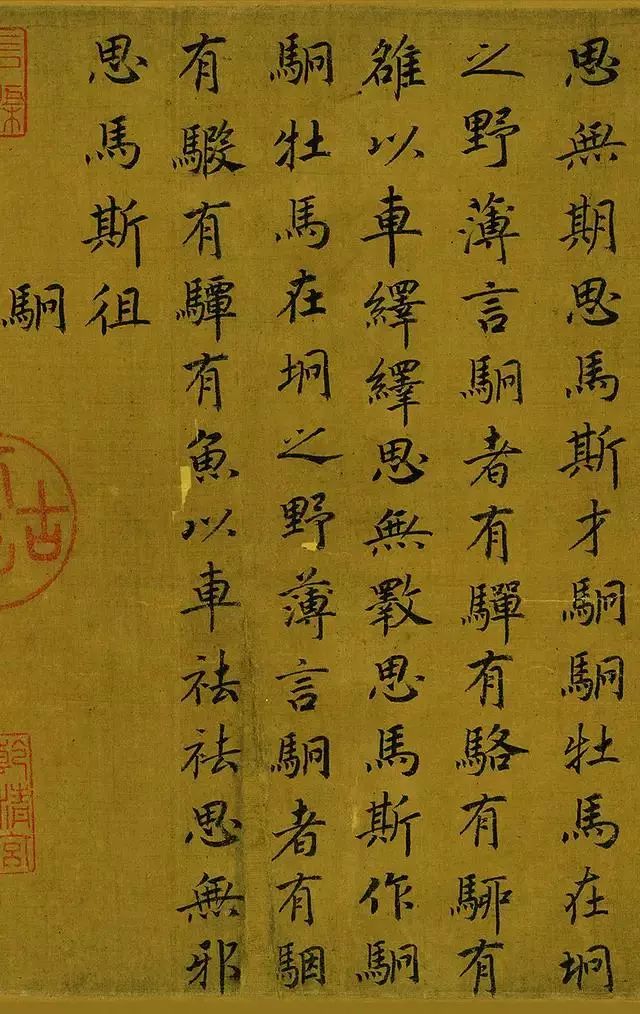 思無期思馬斯才駉駉牡馬在坰
之野薄言駉者有驒有駱有駵有
雒以車繹繹思無斁思馬斯作駉
駉牡馬在坰之野薄言駉者有駰
有騢有驔有魚以車祛祛思無邪
思馬斯徂
駉
古
乾清宮